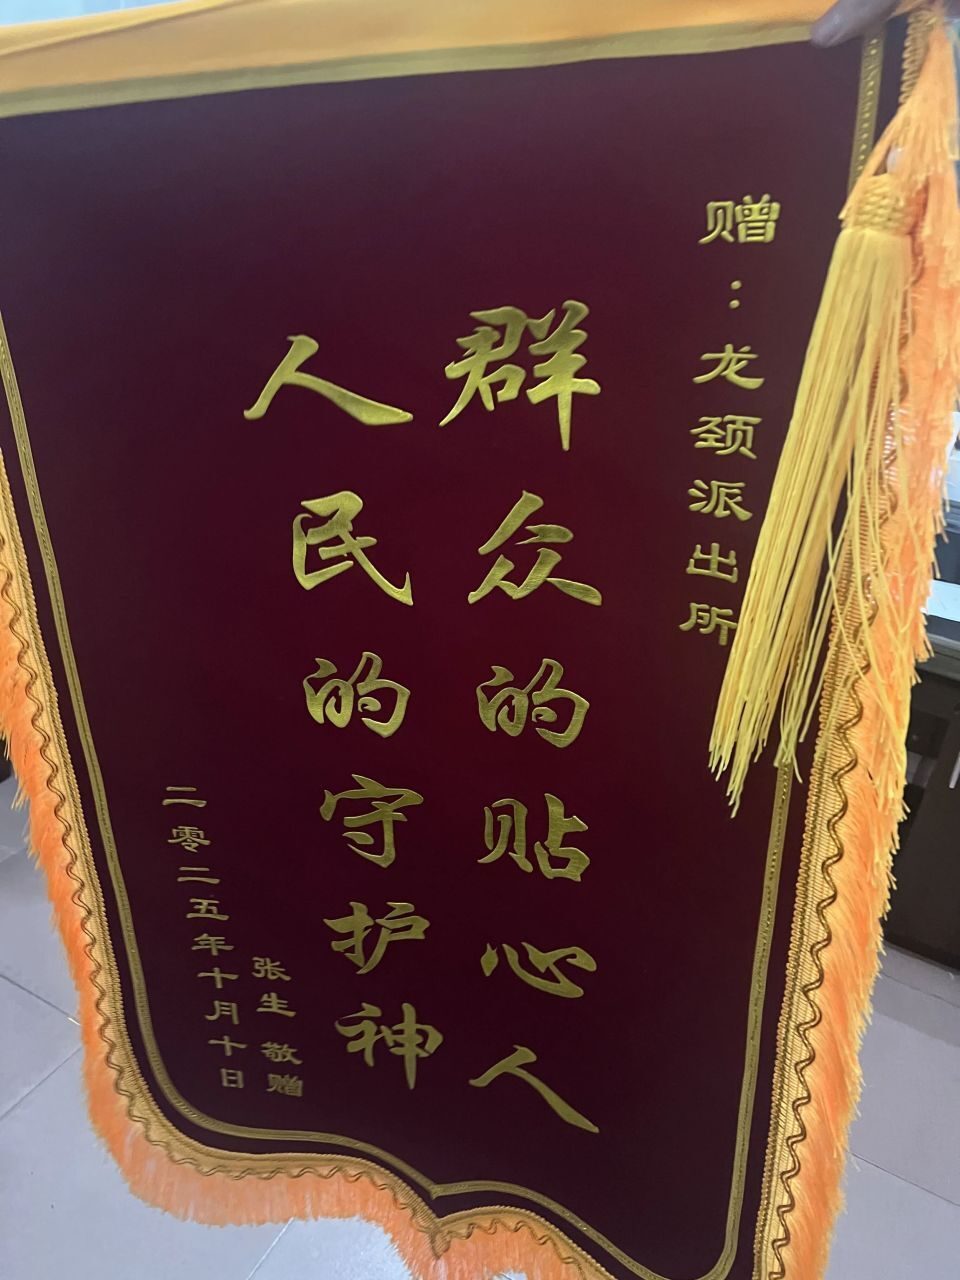 赠：龙颈派出所
群众的贴心人
人民的守护神
张生 敬赠
二零二五年十月十日